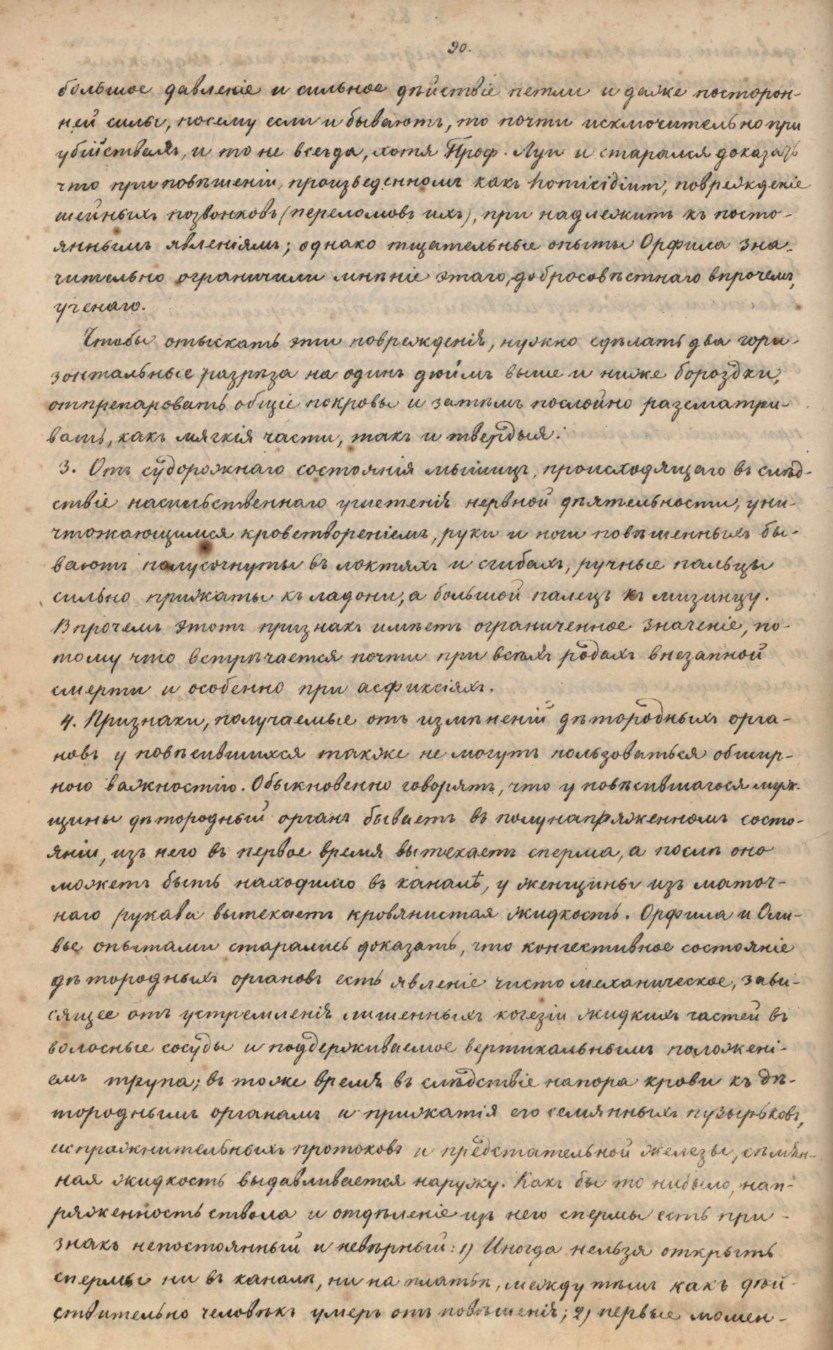 90.
большое давленіе и сильное дѣйствіе петли и даже посторон-
ней силы, посему если и бываютъ, то почти исключительно при
убійствахъ, и то не всегда, хотя Проф. Луи и старался доказать
что при повѣшеніи, произведенномъ какъ homicidium, поврежденіе
шейныхъ позвонковъ (переломовъ ихъ), принадлежитъ къ посто-
яннымъ явленіямъ; однако тщательные опыты Орфила зна-
чительно ограничили мнѣніе этаго, добросовѣстнаго впрочемъ,
ученаго.
Чтобы отыскать эти поврежденія, нужно сдѣлать два гори-
зонтальные разрѣза на одинъ дюймъ выше и ниже бороздки,
отпрепаровать общіе покровы и затѣмъ послойно разсматри-
вать, какъ мягкія части, такъ и твердыя.
3. Отъ судорожнаго состоянія мышицъ, происходящаго въ слѣд-
ствіе насильственнаго угнетенія нервной дѣятельности, уни-
чтожающимся кровотвореніемъ, руки и ноги повѣшенныхъ бы-
ваютъ полусогнуты въ локтяхъ и сгибахъ, ручные пальцы
сильно прижаты къ ладони, а большой палецъ къ мизинцу.
Впрочемъ этотъ признакъ имѣетъ ограниченное значеніе, по-
тому что встрѣчается почти при всѣхъ родахъ внезапной
смерти и особенно при асфиксіяхъ.
4. Признаки, получаемые отъ измѣненій дѣтородныхъ орга-
новъ у повѣсившихся также не могутъ пользоваться обшир-
ною важностію. Обыкновенно говорятъ, что у повѣсившагося муж-
щины дѣтородный органъ бываетъ въ полунапряженномъ состо-
яніи, изъ него въ первое время вытекаетъ сперма, а послѣ оно
можетъ быть находимо въ каналѣ, у женщины изъ маточ-
наго рукава вытекаетъ кровянистая жидкость. Орфила и Оли-
вье опытами старались доказать, что конгестивное состояніе
дѣтородныхъ органовъ есть явленіе чисто механическое, зави-
сящее отъ устремленія лишенныхъ когезіи жидкихъ частей въ
волосные сосуды и поддерживаемое вертикальнымъ положені-
емъ трупа; въ тоже время въ слѣдствіе напора крови къ дѣ-
тороднымъ органамъ и прижатія его семянныхъ пузырьковъ,
испражнительныхъ протоковъ и предстательной железы, сѣмян-
ная жидкость выдавливается наружу. Какъ бы то нибыло, нап-
ряженность ствола и отдѣленіе изъ него спермы есть при-
знакъ непостоянный и невѣрный: 1) Иногда нельзя открыть
спермы ни въ каналѣ, ни на платьѣ, между тѣмъ какъ дѣй-
ствительно человѣкъ умеръ отъ повѣшенія; 2) первые момен-